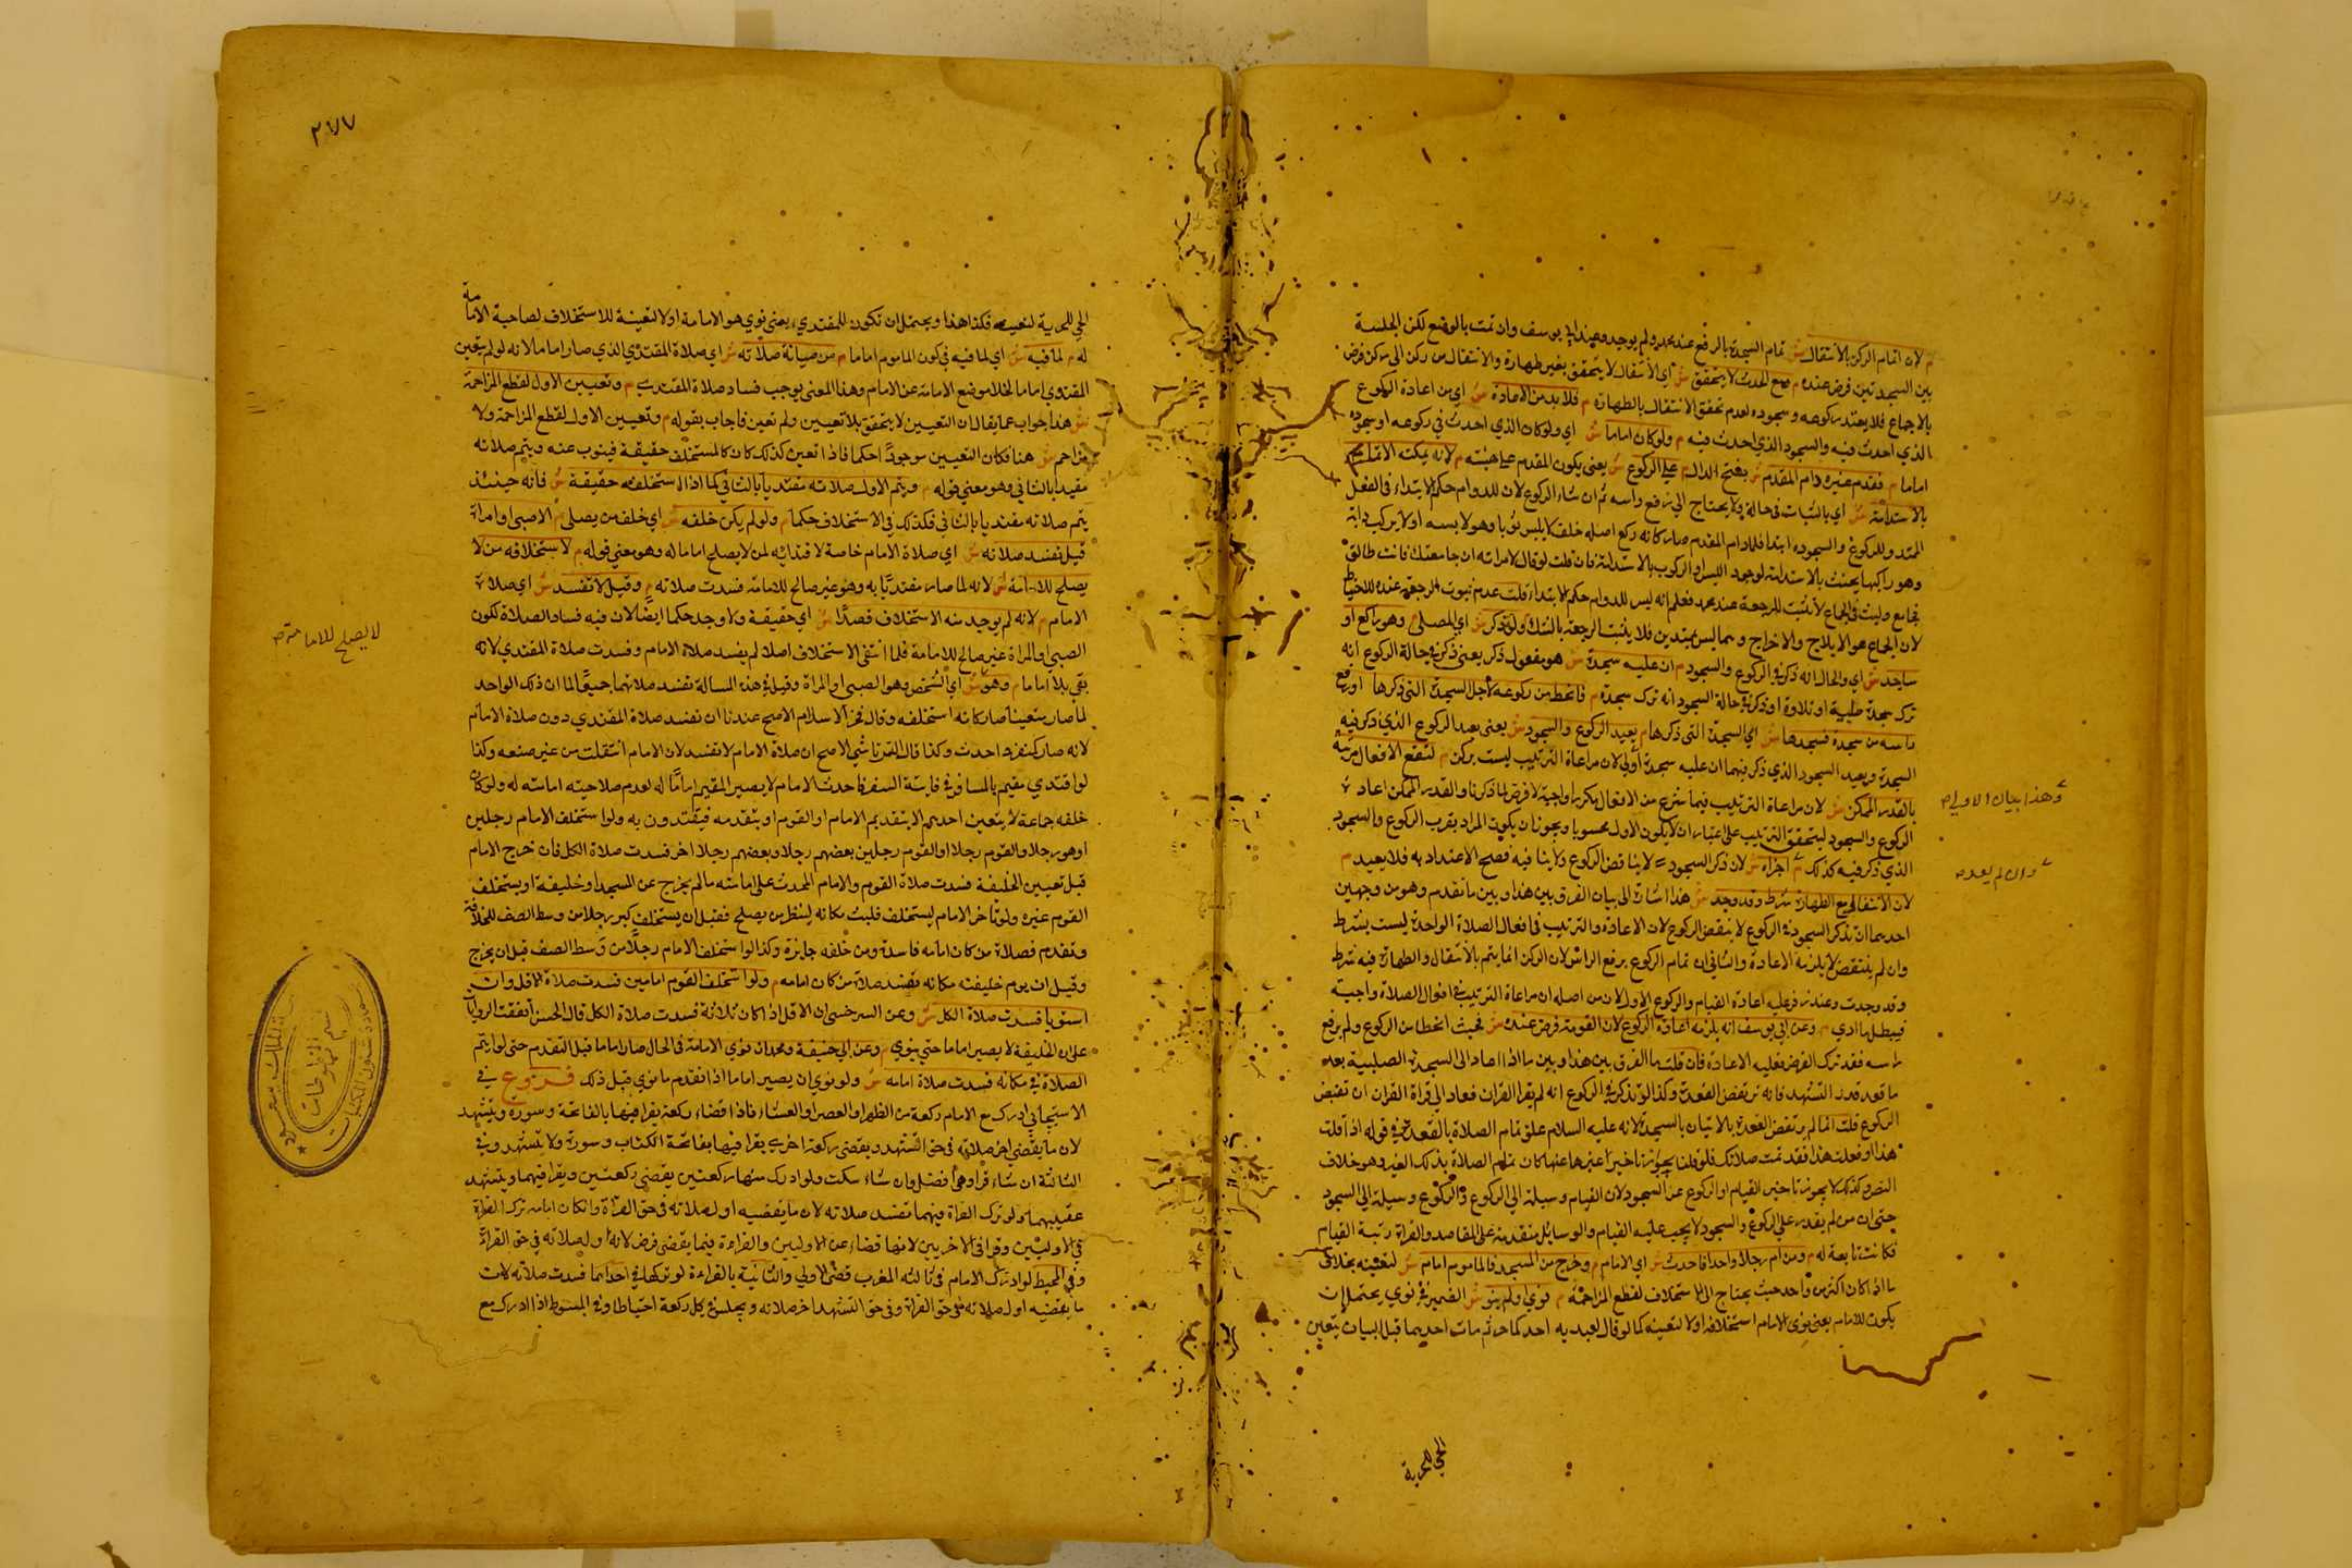 م لان اتمام الركن بالانتقال ش تمام السجدة بالرفع عند محمد ولم يوجد وعند ابي يوسف وان تمت بالوضع لكن الجلسة
بين السجدتين فرض عنده م ومع الحدث لا يتحقق ش اي الانتقال لا يتحقق بغير طهارة والانتقال من ركن الى ركن فرض
بالاجماع فلا يعتد بركوعه وسجوده لعدم تحقق الانتقال بالطهارة م فلا بد من الاعادة ش اي من اعادة الركوع
الذي احدث فيه والسجود الذي احدث فيه م ولو كان اماما ش اي ولو كان الذي احدث في ركوعه او سجوده
اماما م فقدم غيره دام المقدم ش بفتح الدال م على الركوع ش يعني يكون المقدم على هيئته م لانه يمكنه الاتمام
بالاستدامة ش اي بالثبات في حاله ولا يحتاج الى رفع راسه ثم ان شاء الركوع لان للدوام حكم الابتداء في الفعل
الممتد وللركوع والسجود ابتدا فلما دام المقدم صار كانه ركع اصله حلف لا يلبس ثوبا وهو لابسه او لا يركب دابة
وهو راكبها يحنث بالاستدامة لوجود اللبس او الركوب بالاستدامة فان قلت لو قال لامراته ان جامعتك فانت طالق
فجامع ولبث في الجماع لا تثبت للرجعة عند محمد فعلم انه ليس للدوام حكم الابتداء قلت عدم ثبوت الرجعة عنده للاحتياط
لان الجماع هو الايلاج والاخراج وهما ليس بممتدين فلا يثبت الرجعة بالشك ولو تذكر ش اي المصلي م وهو راكع او
ساجد ش اي والحال انه ذكر في الركوع والسجود م ان عليه سجدة ش هو مفعول ذكر يعني ذكر في حالة الركوع انه
ترك سجدة صلبية او تلاوة او ذكر في حالة السجود انه ترك سجدة م فانحط من ركوعه لاجل السجدة التي ذكرها او رفع
راسه من سجدة فسجدها ش اي السجدة التي ذكرها م يعيد الركوع والسجود ش يعني بعد الركوع الذي ذكر فيه
السجدة ويعيد السجود الذي ذكر فيهما ان عليه سجدة اولى لان مراعاة الترتيب ليست بركن م لتقع الافعال مرتبة
بالقدر الممكن ش لان مراعاة الترتيب فيما شرع من الافعال مكررا واجبة لا فرض لما ذكرنا والقدر الممكن اعادة
وهذا بيان الاولى صح
الركوع والسجود ليتحقق الترتيب على اعتبار ان لا يكون الاول محسوبا ويجوز ان يكون المراد بقرب الركوع والسجود
الذي ذكر فيه كذلك م اجزاه ش لان ذكر السجود لا ينافض الركوع ولا ينافيه فصح الاعتداد به فلا يعيد م
وان لم يعد صح
لان الانتقال مع الطهارة شرط وقد وجد ش هذا اشارة الى بيان الفرق بين هذا وبين ما تقدم وهو من وجهين
احدهما ان تذكر السجود في الركوع لا ينقض الركوع لان الاعادة والترتيب في افعال الصلاة الواحدة ليست بشرط
وان لم ينتقض لا يلزمه الاعادة والثاني ان تمام الركوع برفع الراس لان الركن انما يتم بالانتقال والطهارة فيه شرط
وقد وجدت وعند زفر عليه اعادة القيام والركوع الاول لان من اصله ان مراعاة الترتيب في افعال الصلاة واجبة
فيبطل ما ادي م وعن ابي يوسف انه يلزمه اعادة الركوع لان القومة فرض عنده ش فحيث انحط من الركوع ولم يرفع
راسه فقد ترك الفرض فعليه الاعادة فان قلت ما الفرق بين هذا وبين ما اذا عاد الى السجدة الصلبية بعد
ما قعد قدر التشهد فانه ترتفض القعدة وكذا لو تذكر في الركوع انه لم يقرا القران فعاد الى قراة القران ان تقض
الركوع قلت انما لم ترتفض القعدة بالاتيان بالسجدة لانه عليه السلام علق تمام الصلاة بالقعدة في قوله اذا قلت
هذا او فعلت هذا فقد تمت صلاتك فلو قلنا بجواز تاخيرا عنها كان تمام الصلاة بذلك الغير وهو خلاف
النص وكذلك لا يجوز تاخير القيام او الركوع عن السجود لان القيام وسيلة الى الركوع والركوع وسيلة الى السجود
حتى ان من لم يقدر على الركوع والسجود لا يجب عليه القيام والوسايل متقدمة على المقاصد والقراة رتبة القيام
فكانت تابعة له م ومن ام رجلا واحدا فاحدث ش اي الامام م وخرج من المسجد فالماموم امام ش لتعينه بخلاف
ما اذا كان اكثر من واحد حيث يحتاج الى الاستخلاف لقطع المزاحمة م نوى او لم ينو ش الضمير في نوى يحتمل ان
يكون للامام يعني نوى الامام استخلافه او لا لتعينه كما لو قال لعبديه احدكما حر ثم مات احدهما قبل البيان يتعين
الحي للحرية
٢٧٧
الحي للحرية لتعينه فكذا هذا ويحتمل ان تكون للمقتدي يعني نوى هو الامامة او لا لتعينه للاستخلاف لصاحبة الامامة
له م لما فيه ش اي لما فيه في كون الماموم اماما م من صيانة صلاته ش اي صلاة المقتدي الذي صار اماما لانه لو لم يتعين
المقتدي اماما لخلا موضع الامامة عن الامام وهذا المعنى يوجب فساد صلاة المقتدي م وتعيين الاول لقطع المزاحمة
ش هذا جواب عما يقال ان التعيين لا يتحقق بلا تعيين ولم تعين فاجاب بقوله م وتعيين الاول لقطع المزاحمة ولا
مزاحم ش هنا فكان التعيين موجودا حكما فاذا تعين كذلك كان كالمستخلف حقيقة فينوب عنه ويتم صلاته
مقيدا بالثاني وهو معنى قوله م ويتم الاول صلاته مقتديا بالثاني كما اذا استخلفه حقيقة ش فانه حينئذ
يتم صلاته مقتديا بالثاني فكذلك في الاستخلاف حكما م ولو لم يكن خلفه ش اي خلف من يصلي م الا صبي او امراة
قيل تفسد صلاته ش اي صلاة الامام خاصة لاقتدائه لمن لا يصلح اماما له وهو معنى قوله م لاستخلافه من لا
يصلح للامامة ش لانه لما صار مقتديا به وهو غير صالح للامامة فسدت صلاته م وقيل لا تفسد ش اي صلاة
الامام م لانه لم يوجد منه الاستخلاف قصدا ش اي حقيقة ولا وجد حكما ايضا لان فيه فساد الصلاة لكون
لا يصلح للامامة صح
الصبي او المراة غير صالح للامامة فلما انتفى الاستخلاف اصلا لم يفسد صلاة الامام وفسدت صلاة المقتدي لانه
بقي بلا امام م وهو ش اي الشخص وهو الصبي او المراة وقيل في هذه المسالة تفسد صلاتهما جميعا لما ان ذلك الواحد
لما صار متعينا صار كانه استخلفه وقال فخر الاسلام الاصح عندنا ان تفسد صلاة المقتدي دون صلاة الامام
لانه صار كمنفرد احدث وكذا قال التمرتاشي الاصح ان صلاة الامام لا تفسد لان الامام انتقلت من غير صنعه وكذا
لو اقتدي مقيم بالمسافر في فايتة السفر فاحدث الامام لا يصير المقيم اماما له لعدم صلاحيته امامته له ولو كان
خلفه جماعة لا يتعين احدهم الا بتقديم الامام او القوم او يتقدمه فيقتدون به ولو استخلف الامام رجلين
او هو رجلا والقوم رجلا او القوم رجلين بعضهم رجلا وبعضهم رجلا اخر فسدت صلاة الكل فان خرج الامام
قبل تعيين الخليفة فسدت صلاة القوم والامام المحدث على امامته ما لم يخرج عن المسجد او خليفة او يستخلف
القوم غيره ولو تاخر الامام ليستخلف فلبث مكانه لينظر من يصلح فقبل ان يستخلف كبر رجلا من وسط الصف للخلافة
وتقدم فصلاة من كان امامه فاسدة ومن خلفه جايزة وكذا لو استخلف الامام رجلا من وسط الصف قبل ان يخرج
وقيل ان يوم خليفته مكانه تفسد صلاة من كان امامه م ولو استخلف القوم امامين فسدت صلاة الاقل وان
استويا فسدت صلاة الكل ش وعن السرخسي ان الاقل اذا كان ثلاثة فسدت صلاة الكل قال الحسن اتفقت الروايات
على ان الخليفة لا يصير اماما حتى ينوي م وعن ابي حنيفة ومحمد ان نوى الامامة في الحال صار اماما قبل التقدم حتى لو اريتم
الصلاة في مكانه فسدت صلاة امامه ش ولو نوى ان يصير اماما اذا تقدم ما نوى قبل ذلك فروع في
الاسبيجابي ادرك مع الامام ركعة من الظهر او العصر او العشاء فاذا قضاء ركعة يقرا فيها بالفاتحة وسورة ويتشهد
لان ما يقضي اخر صلاته في حق التشهد ويقضي ركعة اخرى يقرا فيها بفاتحة الكتاب وسورة ولا يتشهد وفي
الثالثة ان شاء قرا وهو افضل وان شاء سكت ولو ادرك منها ركعتين يقضي ركعتين ويقرا فيهما ويتشهد
عقيبهما ولو ترك القراة فيهما تفسد صلاته لان ما يقضيه اول صلاته في حق القراة ولو كان امامه ترك القراة
في الاوليين وقرا في الاخريين لانها قضاء عن الاوليين والقراءة فيما يقضي فرض لانه اول صلاته في حق القراة
وفي المحيط لو ادرك الامام في ثالثه المغرب قضى الاولى والثانية بالقراءة لو تركها في احداهما فسدت صلاته لان
ما يقضيه اول صلاته في حق القراة وفي حق التشهد اخر صلاته ويجلس في كل ركعة احتياطا وفي المبسوط اذا ادرك مع